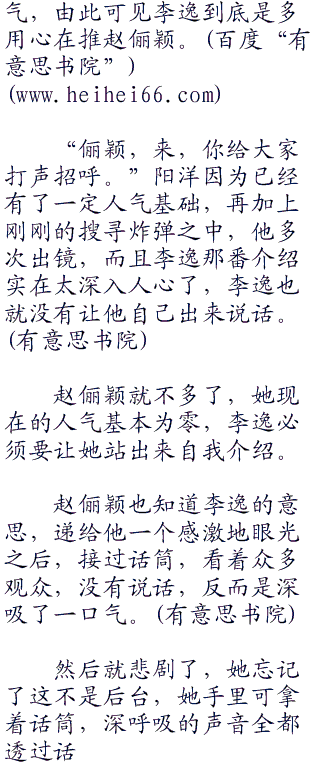 气，由此可见李逸到底是多
用心在推赵俪颖。(百度“有
意思书院”)
(www.heihei66.com)
“俪颖，来，你给大家
打声招呼。”阳洋因为已经
有了一定人气基础，再加上
刚刚的搜寻炸弹之中，他多
次出镜，而且李逸那番介绍
实在太深入人心了，李逸也
就没有让他自己出来说话。
(有意思书院)
赵俪颖就不多了，她现
在的人气基本为零，李逸必
须要让她站出来自我介绍。
赵俪颖也知道李逸的意
思，递给他一个感激地眼光
之后，接过话筒，看着众多
观众，没有说话，反而是深
吸了一口气。(有意思书院)
然后就悲剧了，她忘记
了这不是后台，她手里可拿
着话筒，深呼吸的声音全都
透过话